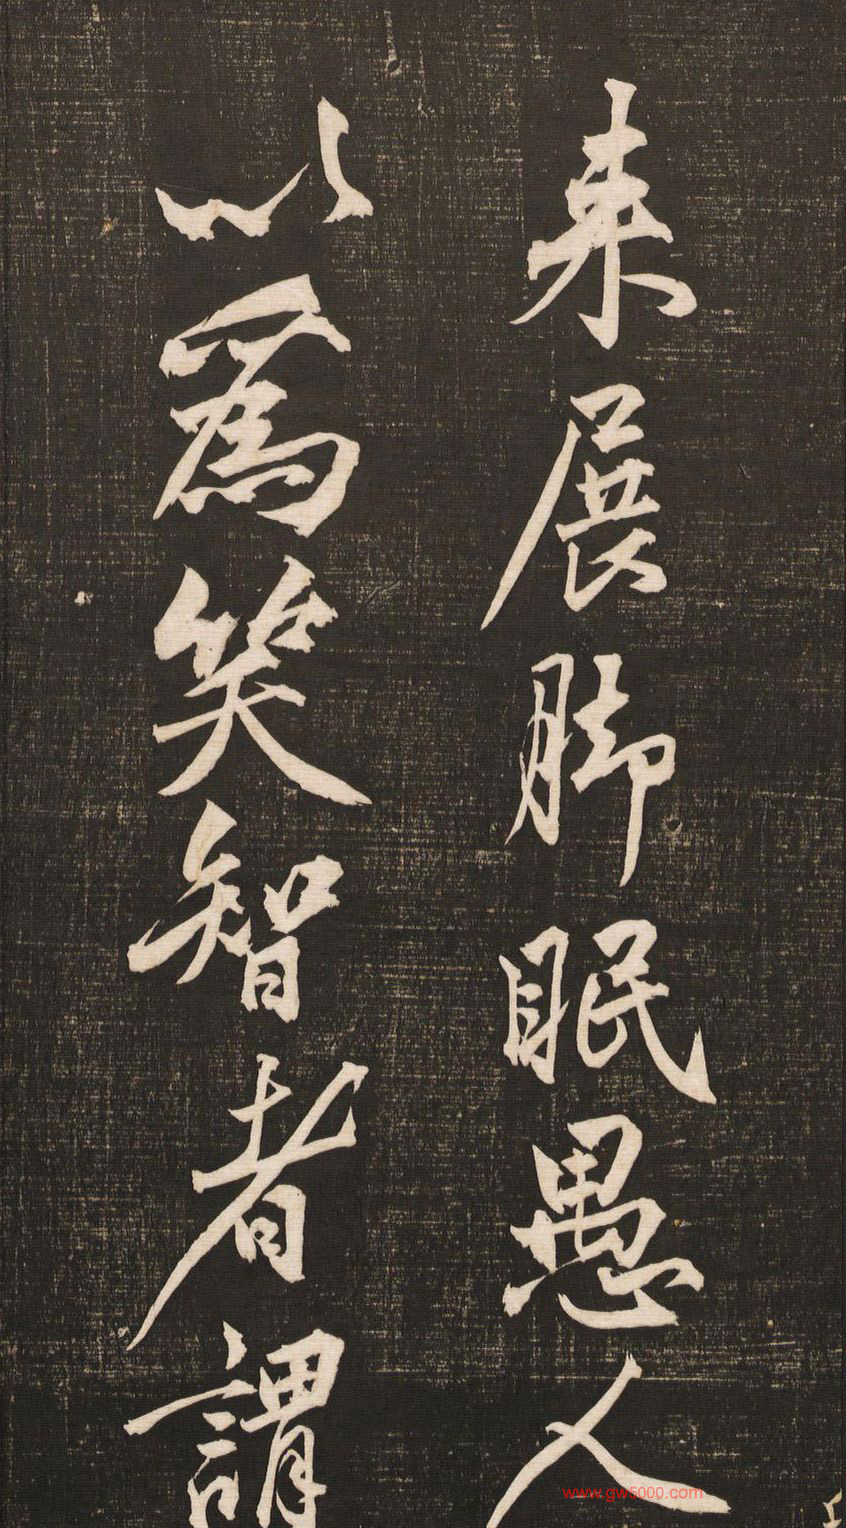 来展脚眠愚人
以為笑智者謂
www.gw5000.com